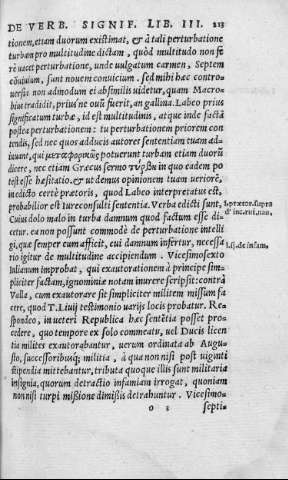 DE VERB. SIGNIF. LIB. III. 213
tionem, etiam duorum existimat, & à tali perturbatione
turbam pro multitudine dictam, quòd multitudo non fe
rè uacet perturbatione, unde uulgatum carmen, Septem
cōuiuium, sunt nouem conuicium. sed mihi hæc contro-
uersia non admodum ei absimilis uidetur, quam Macro-
bius tradidit, prius'ne ouū fuerit, an gallina. Labeo prius
significatum turbæ, id est multitudinis, atque inde factā
postea perturbationem: tu perturbationem priorem con
tendis, sed nec quo adducis autores sententiam tuam ad-
iuuant, qui μεταφορικῶς potuerunt turbam etiam duorū
dicere, nec etiam Græcus sermo τύρβη in quo eadem po
test esse hæsitatio. & ut demus opinionem tuam ueriorē,
in edicto certè prætoris, quod Labeo interpretatus est,
probabilior est Iureconsulti sententia. Verba edicti sunt,
Cuius dolo malo in turba damnum quod factum esse di-
cetur. ea non possunt commodè de perturbatione intelli
gi, quæ semper eum afficit, cui damnum infertur, necessa
rio igitur de multitudine accipiendum. Vicesimosexto
Iulianum improbat, qui exautorationem à principe sim-
pliciter factam, ignominiæ notam inurere scripsit: contrà
Valla, cum exautorare sit simpliciter militem missum fa
cere, quod T. Liuij testimonio uarijs locis probatur. Re-
spondeo, in ueteri Republica hæc sentētia posset pro-
cedere, quo tempore ex solo commeatu, uel Ducis licen
tia milites exautorabantur, uerum ordinata ab Augu-
sto, successoribusq; militia, à qua non nisi post uiginti
stipendia mittebantur, tributa quoque illis sunt militaria
insignia, quorum detractio infamiam irrogat, quoniam
non nisi turpi missione dimissis detrahuntur. Vicesimo-
o 3 septi-
l. prætor. supra
l. ij. de infam.